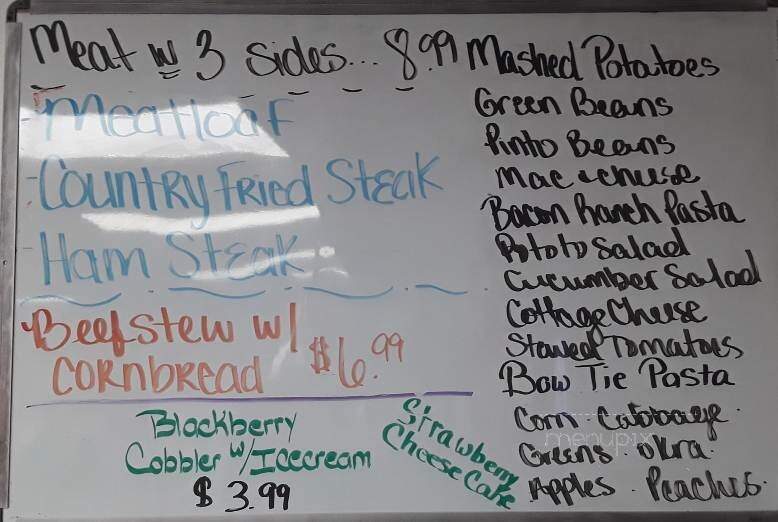 Meat w 3 sides... 8.99
-Meatloaf
-Country Fried Steak
-Ham Steak
Beef stew w/
Cornbread $6.99
Blackberry
Cobbler w/ Icecream
$3.99
Strawberry
Cheese Cake
Mashed Potatoes
Green Beans
Pinto Beans
Mac & cheese
Bacon Ranch Pasta
Potato Salad
Cucumber Salad
Cottage Cheese
Stewed Tomatoes
Bow Tie Pasta
Corn . Cabbage .
Greens . okra .
Apples . Peaches .
menupix